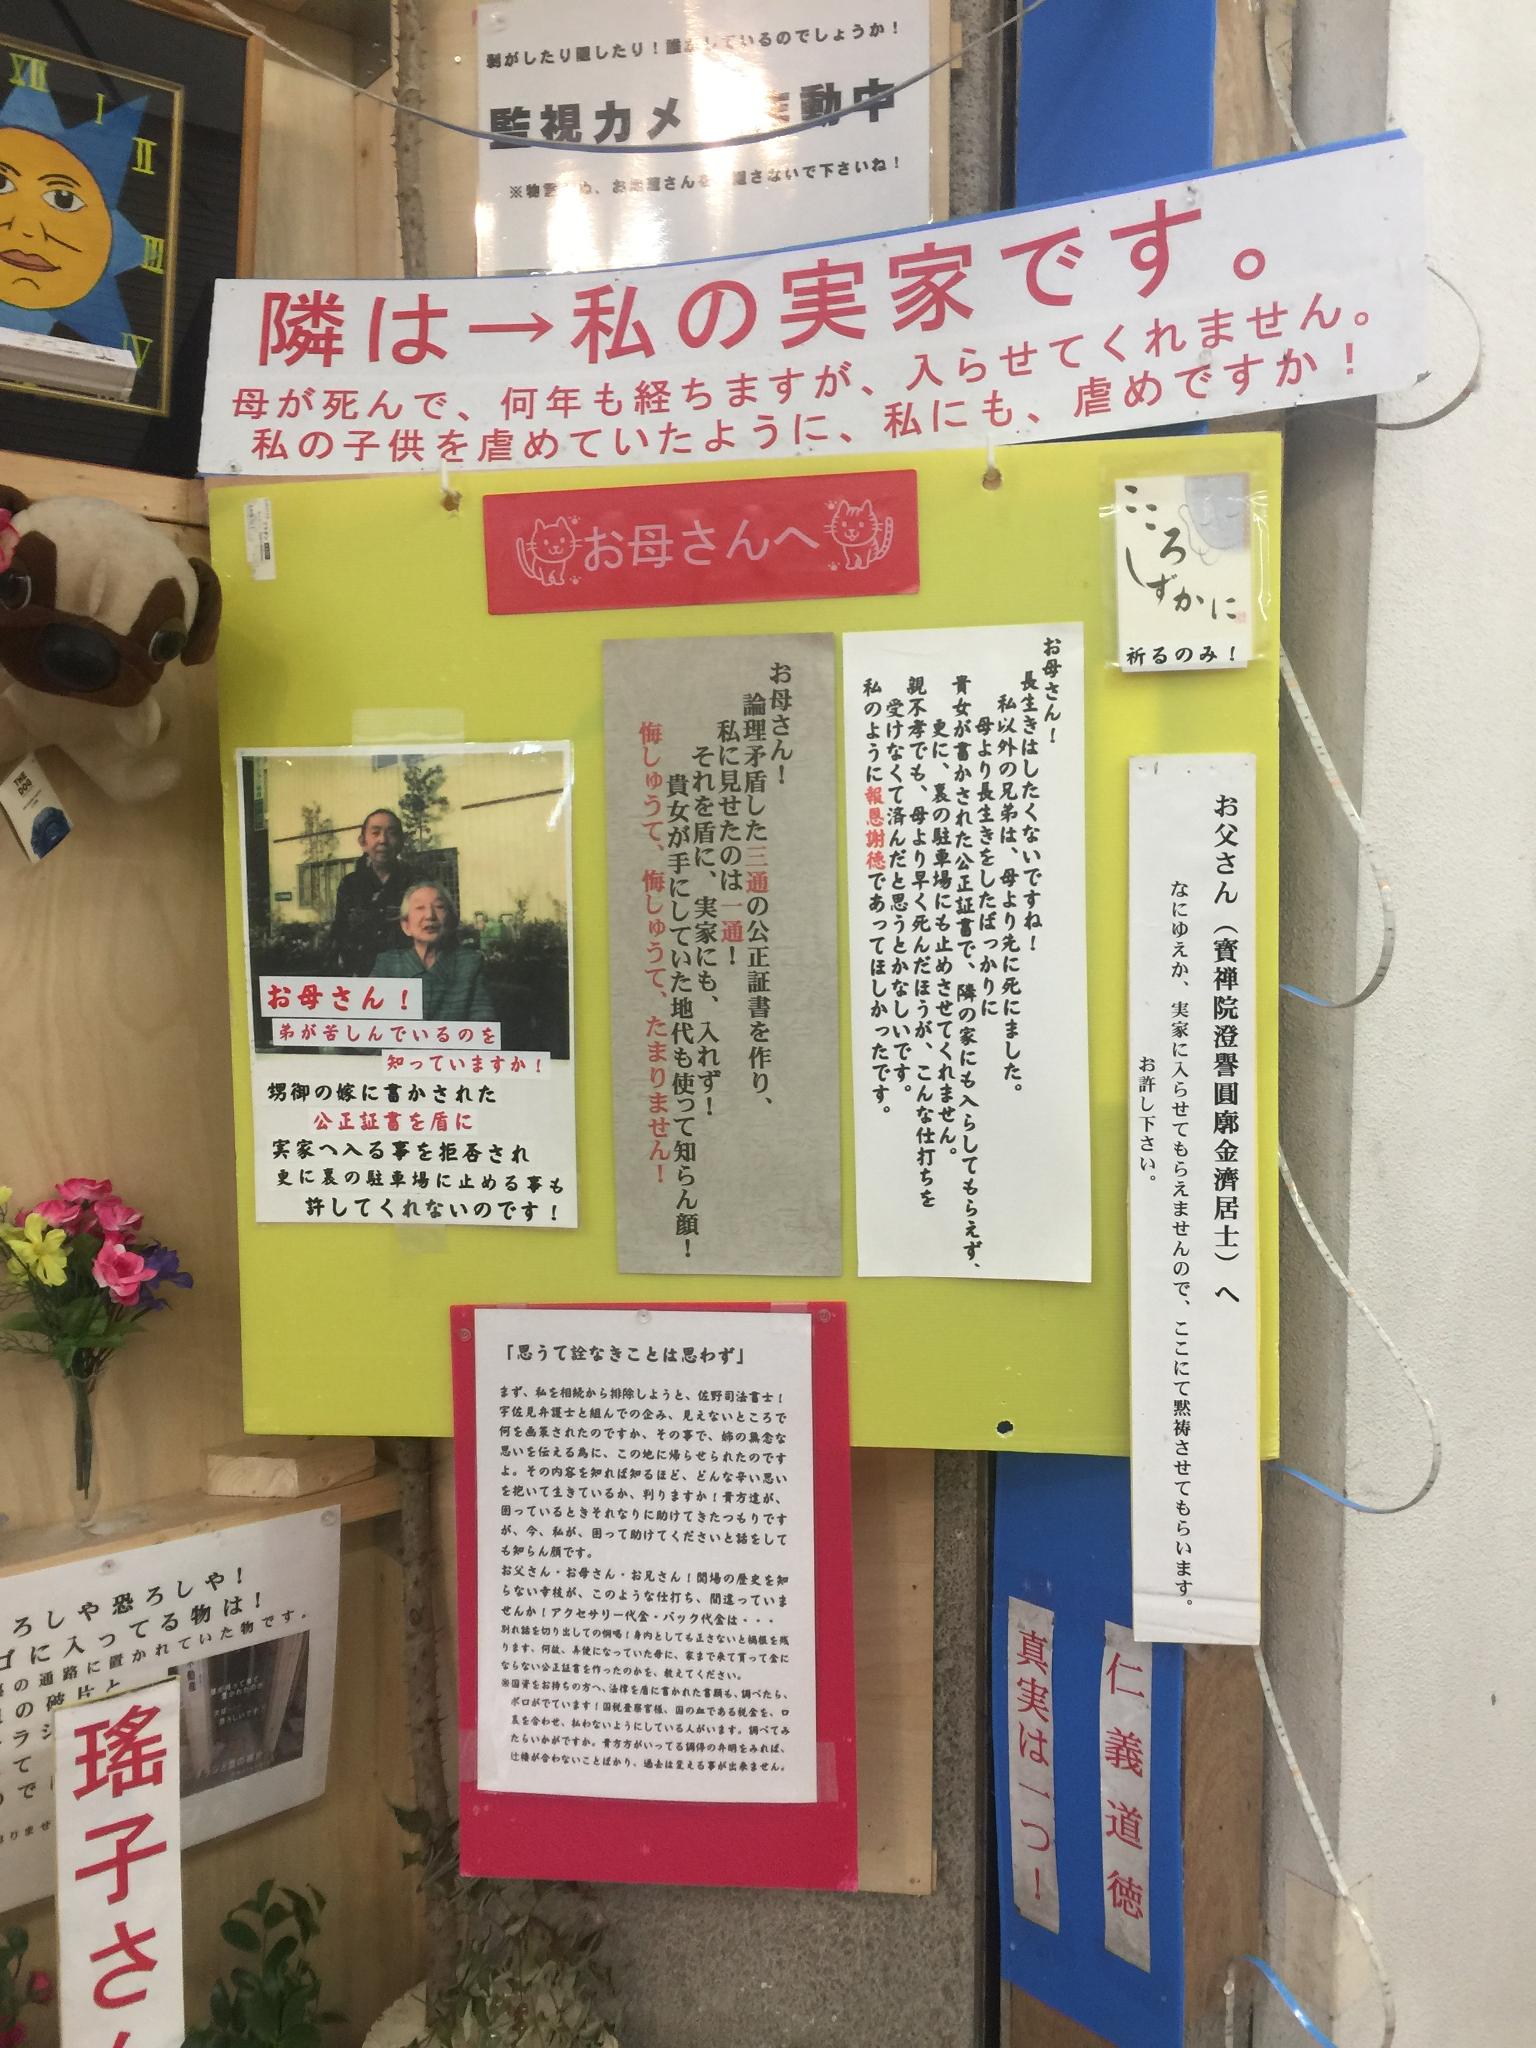 剥がしたり隠したり!誰がしているのでしょうか!
監視カメ 動中
お地蔵さんを 隠さないで下さいね!
XII
I
II
III
IV
隣は→私の実家です。
母が死んで、何年も経ちますが、入らせてくれません。
私の子供を虐めていたように、私にも、虐めですか!
お母さんへ
こころ
しずかに
祈るのみ!
お父さん(寳禅院澄譽圓廓金濟居士)へ
なにゆえか、実家に入らせてもらえませんので、ここにて黙祷させてもらいます。
お許し下さい。
お母さん!
長生きはしたくないですね!
私以外の兄弟は、母より先に死にました。
母より長生きをしたばっかりに
貴女が書かされた公正証書で、隣の家にも入らしてもらえず、
更に、裏の駐車場にも止めさせてくれません。
親不孝でも、母より早く死んだほうが、こんな仕打ちを
受けなくて済んだと思うとかなしいです。
私のように報恩謝徳であってほしかったです。
お母さん!
論理矛盾した三通の公正証書を作り、
私に見せたのは一通!
それを盾に、実家にも、入れず!
貴女が手にしていた地代も使って知らん顔!
悔しゅうて、悔しゅうて、たまりません!
お母さん!
弟が苦しんでいるのを
知っていますか!
甥御の嫁に書かされた
公正証書を盾に
実家へ入る事を拒否され
更に裏の駐車場に止める事も
許してくれないのです!
「思うて詮なきことは思わず」
まず、私を相続から排除しようと、佐野司法書士!
宇佐見弁護士と組んでの企み、見えないところで
何を画策されたのですか、その事で、姉の異念な
思いを伝える為に、この地に帰らせられたのです
よ。その内容を知れば知るほど、どんな辛い思い
を抱いて生きているか、判りますか!貴方達が、
困っているときそれなりに助けてきたつもりです
が、今、私が、困って助けてくださいと話をして
も知らん顔です。
お父さん・お母さん・お兄さん!関場の歴史を知
らない幸枝が、このような仕打ち、間違っていま
せんか!アクセサリー代金・バック代金は・・・
別れ話を切り出しての恫喝!身内としても正さないと禍根を残
ります、何故、弄便になっていた母に、家まで来て貰って金に
ならない公正証書を作ったのかを、教えてください。
※国資をお持ちの方へ、法律を盾に書かれた書類も、調べたら、
ボロがでています!国税査察官様、国の血である税金を、口
裏を合わせ、払わないようにしている人がいます。調べてみ
たらいかがですか。貴方方がいってる調停の弁明をみれば、
辻褄が合わないことばかり、過去は変える事が出来ません。
仁義道徳
真実は一つ!
ろしや恐ろしや!
ゴに入ってる物は!
の通路に置かれていた物です。
の破片と
瑤子さん